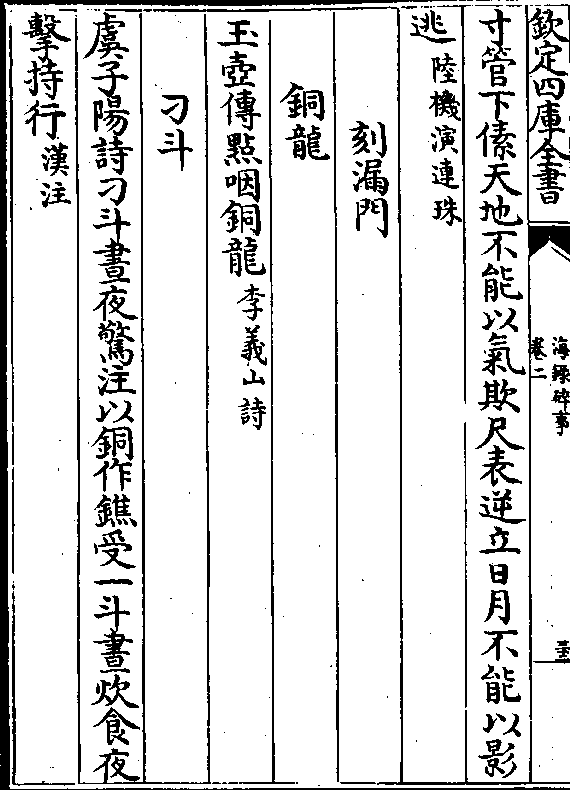 欽定四庫全書
海録碎事
卷二
寸管下傃天地不能以氣欺尺表逆立日月不能以影
逃陸機演連珠
刻漏門
銅龍
玉壺傳點咽銅龍李義山詩
刁斗
虞子陽詩刁斗晝夜驚注以銅作鐎受一斗晝炊食夜
擊持行漢注